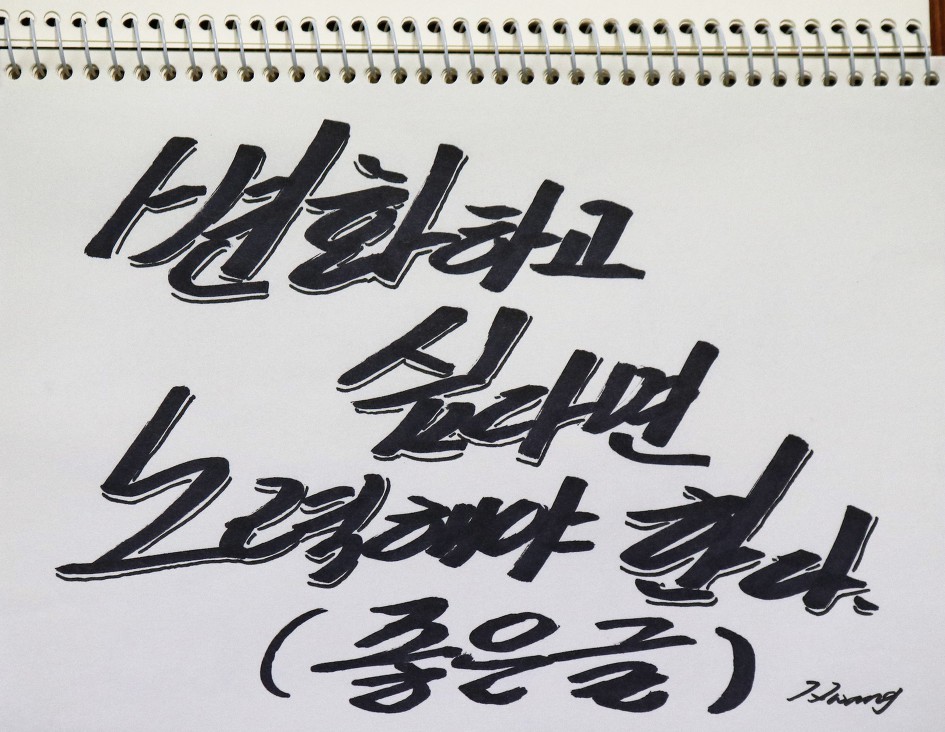 변화하고
싶다면
노력해야 한다.
(좋은글)
Hwang